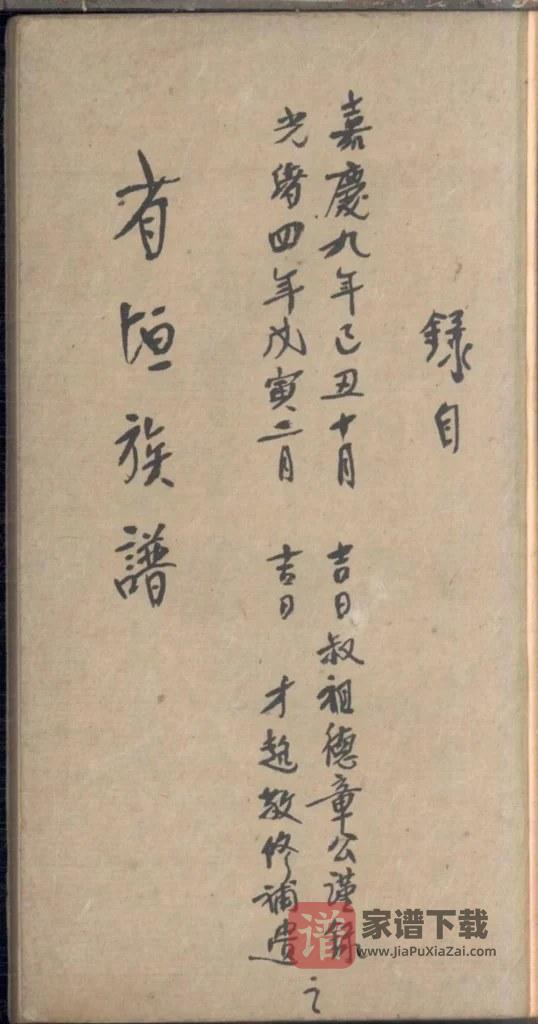 録自
嘉慶九年己丑十月 吉日叔祖德章公謹錄
光緒四年戊寅二月 吉日 才起敬修補遺之
省垣族譜
谱 家谱下载
www.JiaPuXiaZai.com